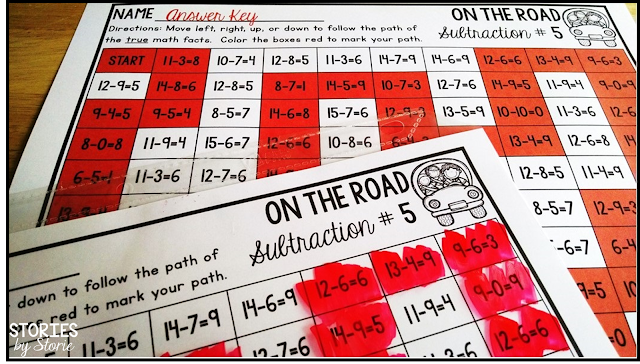 NAME Answer Key
ON THE ROAD
Subtraction # 5
Directions: Move left, right, up, or down to follow the path of
the true math facts. Color the boxes red to mark your path.
START 11-3=8 10-7=4 12-8=5 11-3=6 14-7=9 14-6=9 12-6=6 13-4=9 9-6=3
12-9=5 14-8=6 12-8=5 8-7=1 14-5=9 10-7=3 12-7=6 14-9=5 11-9=4 9-0=9
9-4=5 9-5=4 8-5=7 14-6=8 15-7=6 12-9=3 13-5=9 10-10=0 11-3=6
8-0=8 11-9=4 15-6=7 12-6=6 10-8=6 13-4=9 12-6=8
6-5=1 11-3=6 12-7=6 12-8=5 11-4=9
8-5=7 12-9=3
ON THE ROAD
Subtraction # 5
down to follow the path of
red to mark your path.
11-3=6 14-7=9 14-6=9 12-6=6 13-4=9 9-6=3
14-9=5 11-9=4 9-0=9
12-6=6
STORIES
by Storie